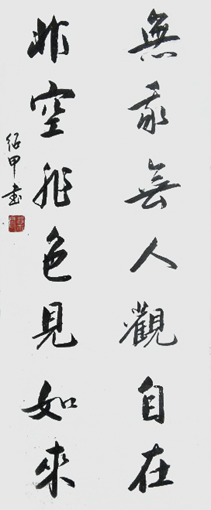 無我無人觀自在
非空非色見如來
紹甲書